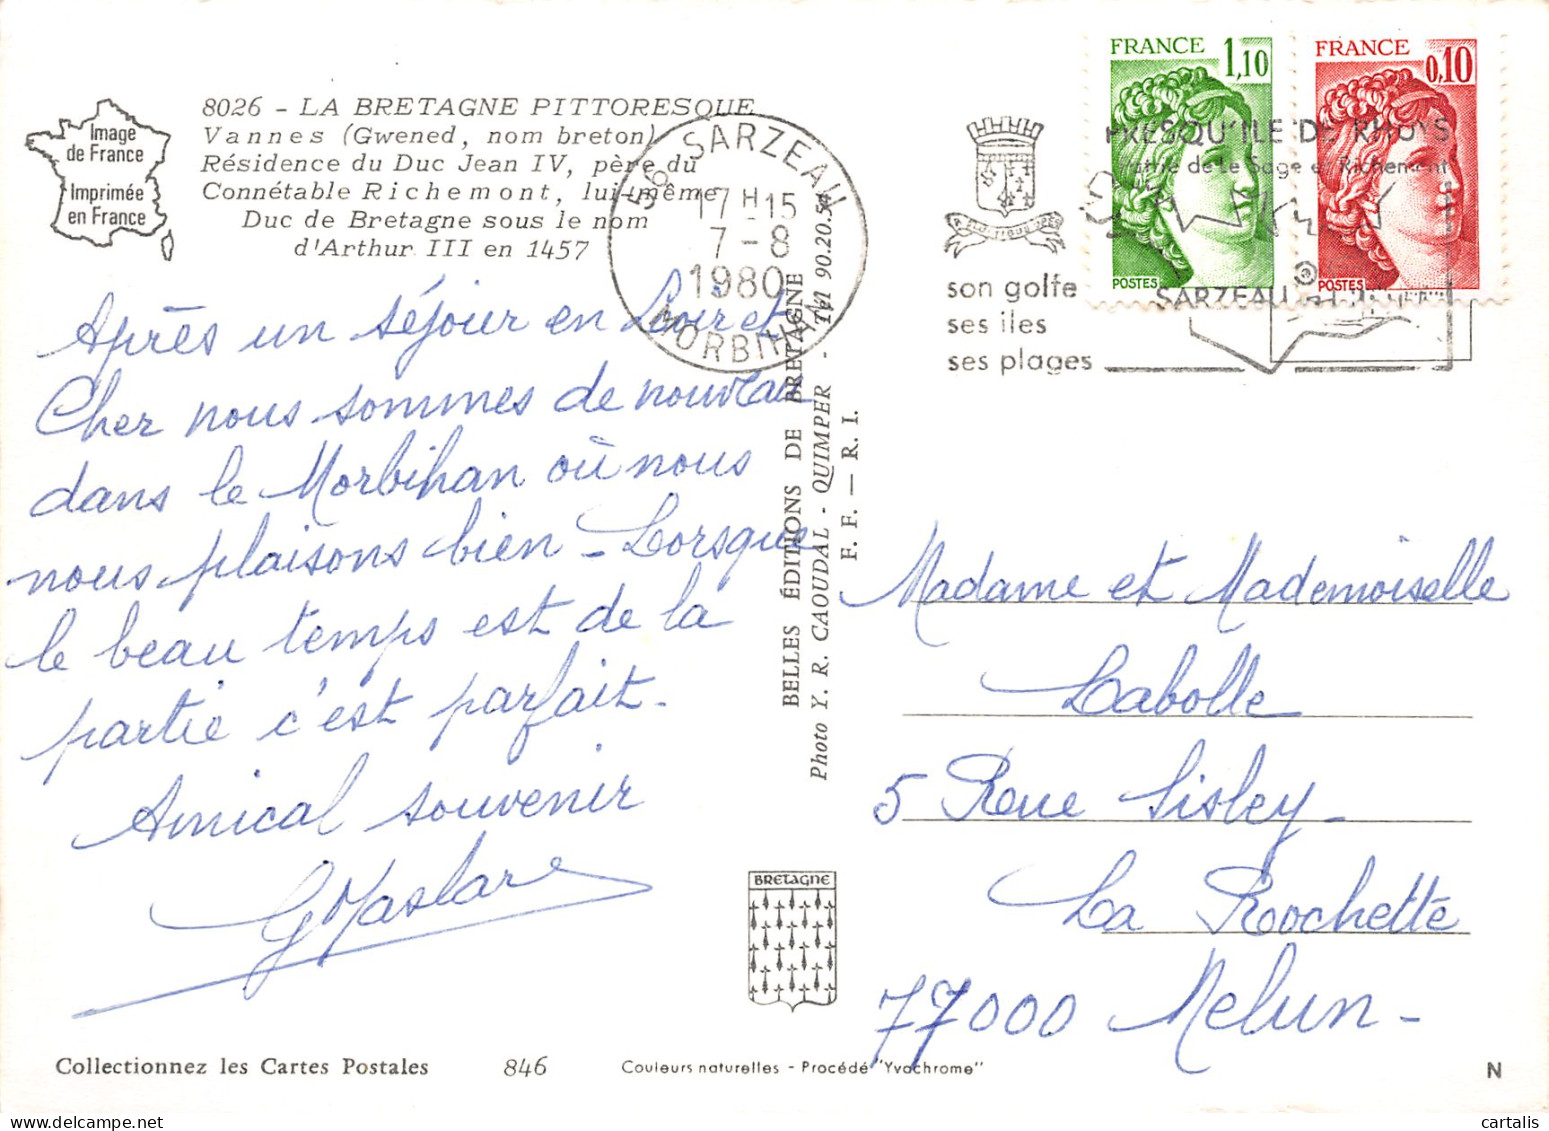 8026 - LA BRETAGNE PITTORESQUE
Vannes (Gwened, nom breton)
Résidence du Duc Jean IV, père du
Connétable Richemont, lui-même
Duc de Bretagne sous le nom
d'Arthur III en 1457
Image
de France
Imprimée
en France
56 SARZEAU
17 H 15
7 - 8
1980
MORBIHAN
FRANCE 1,10
POSTES
FRANCE 0,10
POSTES
PRESQU'ILE DE RHUYS
Patrie de Le Sage et Richemont
son golfe
ses iles
ses plages
SARZEAU
Après un séjour en Loir et
Cher nous sommes de nouveau
dans le Morbihan où nous
nous plaisons bien - Lorsque
le beau temps est de la
partie c'est parfait.
Amical souvenir
BELLES ÉDITIONS DE BRETAGNE
Photo Y. R. CAOUDAL - QUIMPER - Tél 90.20.54
F. F. — R. I.
Madame et Mademoiselle
Labolle
5 Rue Sisley -
La Rochette
77000 Melun -
BRETAGNE
Collectionnez les Cartes Postales
846
Couleurs naturelles - Procédé "Yvachrome"
N
cartalis
Delcampe.net